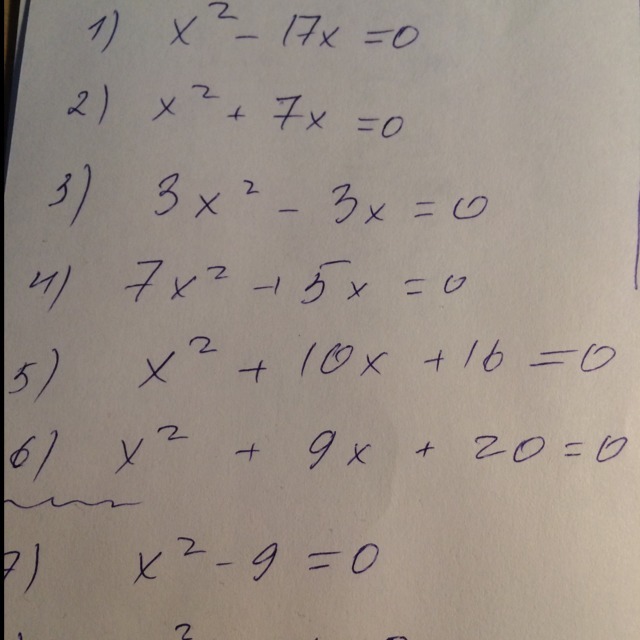 1) x² - 17x = 0
2) x² + 7x = 0
3) 3x² - 3x = 0
4) 7x² + 5x = 0
5) x² + 10x + 16 = 0
6) x² + 9x + 20 = 0
7) x² - 9 = 0